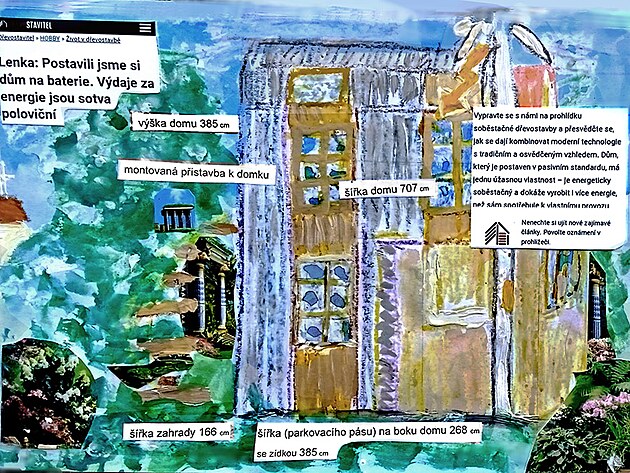 STAVITEL
Dřevostavitel » HOBBY » Život v dřevostavbě
Lenka: Postavili jsme si
dům na baterie. Výdaje za
energie jsou sotva
poloviční
výška domu 385 cm
montovaná přístavba k domku
šířka domu 707 cm
Vypravte se s námi na prohlídku
soběstačné dřevostavby a přesvědčte se,
jak se dají kombinovat moderní technologie
s tradičním a osvědčeným vzhledem. Dům,
který je postaven v pasivním standardu, má
jednu úžasnou vlastnost – je energeticky
soběstačný a dokáže vyrobit i více energie,
než sám spotřebuje k vlastnímu provozu
Nenechte si ujít nové zajímavé
články. Povolte oznámení v
prohlížeči.
šířka zahrady 166 cm
šířka (parkovacího pásu) na boku domu 268 cm
se zídkou 385 cm